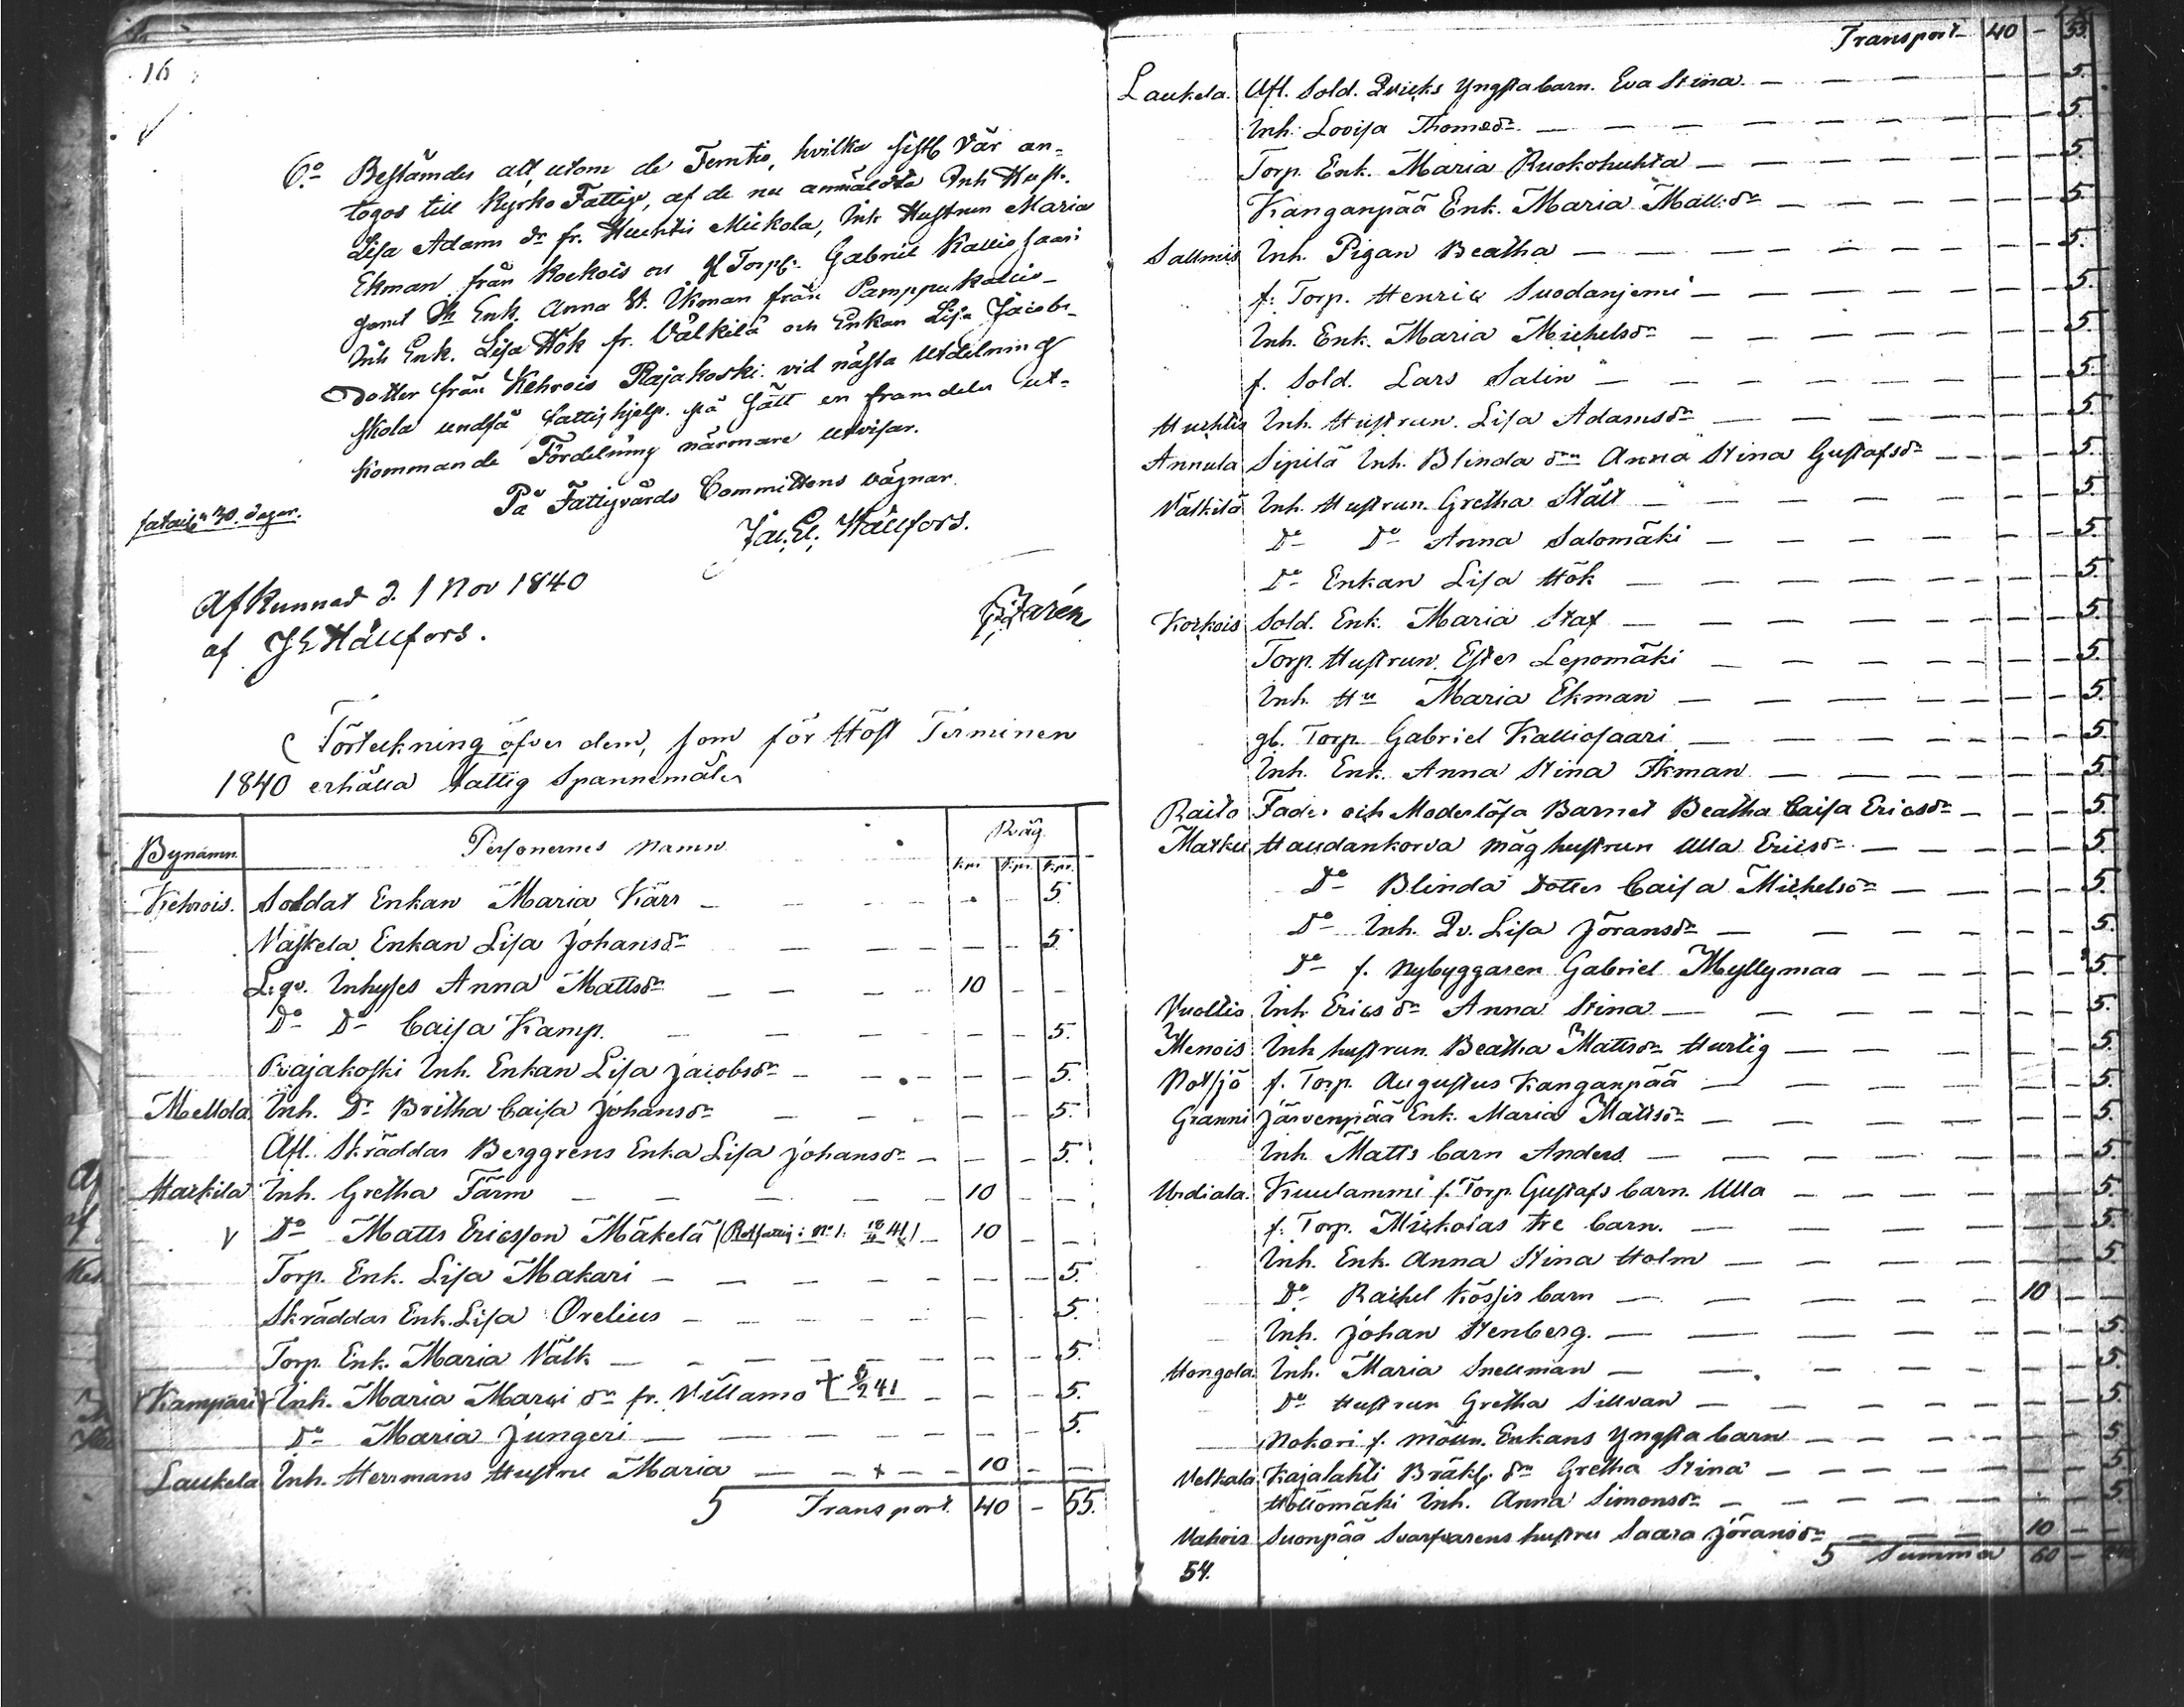 16
6:o Bestämdes att utom de Femtio, hvilka sistl Vår an=
togos till Kyrko Fattige, af de nu anmäldta Inh Hust.
Lisa Adams dr fr. Huhtis Mickola, Inh Hustrun Maria
Ekman från Kockois en gl Torp. Gabriel Kalliosaari
samt Enk. Anna St. Ikman från Pamppukallio
Inh Enk. Lisa Hök fr. Välkilä och Enkan Lisa Jacobs-
dotter från Kehrois Rajakoski vid nästa Utdelning
skola undfå fattighjelp. på sätt en framdeles ut=
kommande Fördelning närmare utvisar.
På Fattigvårds Committens vägnar.
30. dagar.
Jac. El. Hällfors.
Afkunnad d. 1 Nov 1840
af J E Hällfors.
Förteckning öfver dem, som för Höst Terminen
1840 erhålla fattig Spannemålen
Bynamn. Personernes Namn Råg
Kpr. Kpr. Kpr.
Kehrois. Soldat Enkan Maria Kärr — 5.
Naskela Enkan Lisa Johansdr — 5
Inhyses Anna Mattsdr — 10 — —
Do Do Caisa Kamp. — 5.
Rajakoski Inh. Enkan Lisa Jacobsdr — 5.
Mellola Inh. Dr Britha Caisa Johansdr — 5.
Afl. Skräddar Berggrens Enka Lisa Johansdr — 5.
Harkila Inh. Gretha Färm — 10 — —
V Do Matts Ericsson Mäkelä — 10 — —
Torp. Enk. Lisa Makari — 5.
Skräddar Enk. Lisa Orelius — 5.
Torp. Enk. Maria Välk — 5.
Kampari Inh. Maria Marci dr fr. Villamo + 6/2 41 — 5.
Do Maria Jungeri — 5.
Laukela Inh. Herrmans Hustru Maria — + — 10 — —
5 Transport. 40 — 55.
Transport 40 — 55.
Laukela. Afl. Sold. Qvicks Yngsta barn. Eva Stina. — 5.
Inh. Lovisa Thomsdr. — 5.
Torp. Enk. Maria Ruokohuhta — 5.
Kanganpää Enk. Maria Matt:dr — 5.
Sallmis Inh. Pigan Beatha — 5.
f. Torp. Henric Suodanjemi — 5.
Inh. Enk. Maria Michelsdr — 5.
f. Sold. Lars Salin — 5.
Huhtis Inh. Hustrun. Lisa Adamsdr — 5.
Annula Sipilä Inh. Blinda drn Anna Stina Gustafsdr — 5.
Välkilä Inh. Hustrun. Gretha Stält — 5.
Do Do Anna Salomäki — 5.
Do Enkan Lisa Hök — 5.
Korkois Sold. Enk. Maria Staf — 5.
Torp. Hustrun. Ester Lepomäki — 5.
Inh. Hu Maria Ekman — 5.
gl. Torp. Gabriel Kalliosaari — 5.
Inh. Enk. Anna Stina Ikman — 5.
Raito Fader och Moderlösa Barnet Beatha Caisa Ericsdr — 5.
Marku Haudankorva måg hustrun Ulla Ericsdr — 5.
Do Blinda Dotter Caisa Michelsdr — 5.
Do Inh. Qv. Lisa Jöransdr — 5.
Do f. Nybyggaren Gabriel Myllymaa — 5.
Vuoltis Inh. Erics dr Anna Stina — 5.
Menois Inh hustrun. Beatha Mattsdr Hurtig — 5.
Notsjö f. Torp. Augustus Kanganpää — 5.
Granni Järvenpää Enk. Maria Mattsdr — 5.
Inh. Matts barn Anders — 5.
Urdiala. Kuulammi f. Torp. Gustafs barn. Ulla — 5.
f. Torp. Mickolas tre barn. — 5.
Inh. Enk. Anna Stina Holm — 5.
Do Rachel Kössis barn — 10 — —
Inh. Johan Stenberg. — 5.
Hongola. Inh. Maria Snellman — 5.
Do Hustrun Gretha Sillvan — 5.
Nokori f. Möln. Enkans Yngsta barn — 5
Velkala Kajalahti Bräkl. drn Gretha Stina — 5
Höltömäki Inh. Anna Simonsdr — 5
Vahois Suonpää Svarfvarens hustru Saara Jöransdr — 10 — —
5 Summa 60 —
54.